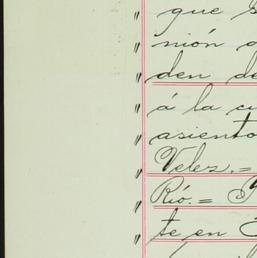 que
nión
den de
á la
asiento
Velez.=
Río.=
te en